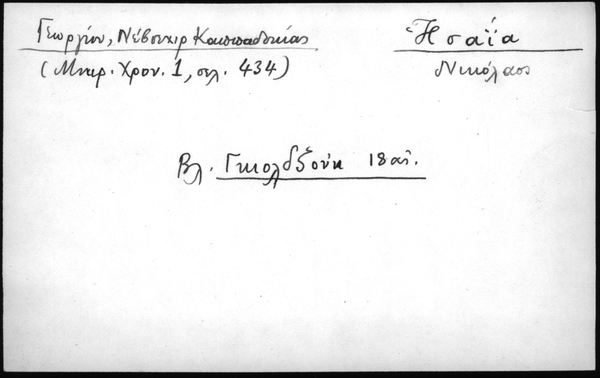 Γεωργίου, Νέβσεχιρ Καππαδοκίας
(Μικρ. Χρον. 1, σελ. 434)
Ἡσαΐα
Νικόλαος
Βλ. Γκιολδζούκ 18 αἰ.